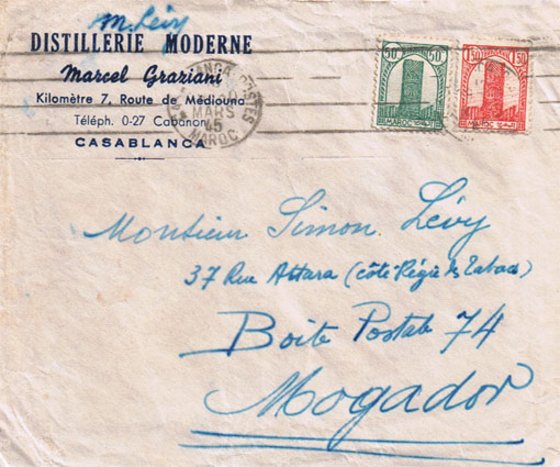 M. Lévy
DISTILLERIE MODERNE
Marcel Graziani
Kilomètre 7, Route de Médiouna
Téléph. 0-27 Cabanon
CASABLANCA
CASABLANCA POSTES
MARS
45
MAROC
50 50
MAROC
1F50 1F50
MAROC
Monsieur Simon Lévy
37 Rue Attara (côté Régie des Tabacs)
Boite Postale 74
Mogador